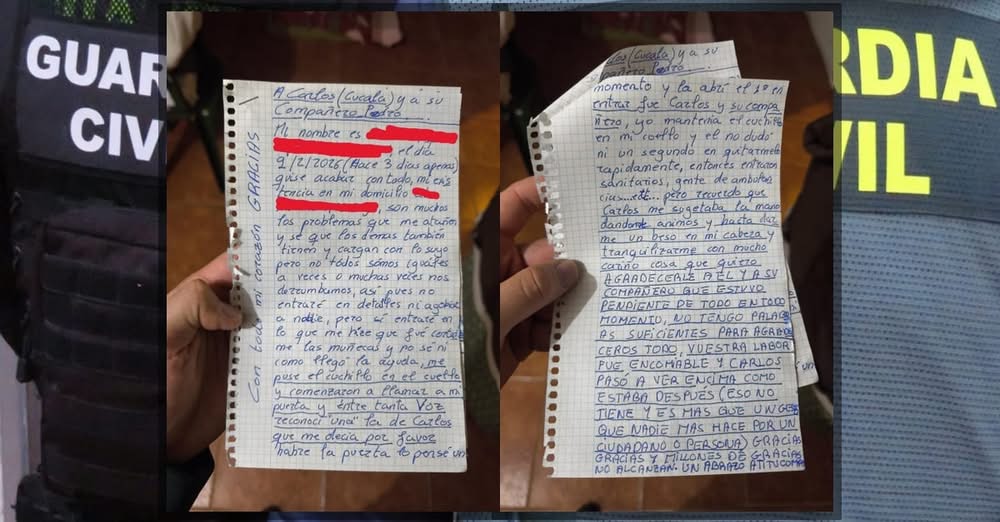 GUAR
CIV
RDIA
VIL
1
A Carlos (Cucala) y a su
Compañero Pedro.
Mi nombre es
el día
9/2/2026 (Hace 3 días apenas)
quise acabar con todo, mi exis
tencia en mi domicilio
, son muchos
los problemas que me atañen
y se que los demas también
tienen y cargan con lo suyo
pero no todos somos iguales
a veces o muchas veces nos
derrumbamos, así pues no
entraré en detalles ni agobiar
a nadie, pero si entraré en
lo que me hice que fué cortar
me las muñecas y no sé ni
como llegó la ayuda, me
puse el cuchillo en el cuello
y comenzaron a llamar a mi
puerta y entre tanta voz
reconocí "una" la de Carlos
que me decía por favor
habre la puerta lo pensé un
Con todo mi corazón GRACIAS
los (Cucala) y a su
pañero Pedro.
momento y la abrí el 1º en
entrar fue Carlos y su compa
ñero, yo mantenía el cuchillo
en mi cuello y el no dudó
ni un segundo en quitarmelo
rapidamente, entonces entraron
sanitarios, gente de ambulan
cias...ett... pero recuerdo que
Carlos me sugetaba la mano
dandome animos y hasta dar
me un beso en mi cabeza y
tranquilizarme con mucho
cariño cosa que quiero
AGRADECERLE A EL Y A SU
COMPAÑERO QUE ESTUVO
PENDIENTE DE TODO EN TODO
MOMENTO, NO TENGO PALABR
AS SUFICIENTES PARA AGRADE
CEROS TODO, VUESTRA LABOR
FUE ENCOMIABLE Y CARLOS
PASÓ A VER ENCIMA COMO
ESTABA DESPUÉS (ESO NO
TIENE Y ES MAS QUE UN GES
QUE NADIE MAS HACE POR UN
CIUDADANO O PERSONA) GRACIAS
GRACIAS Y MILLONES DE GRACIAS
NO ALCANZAN. UN ABRAZO A TI TU COMPA
un